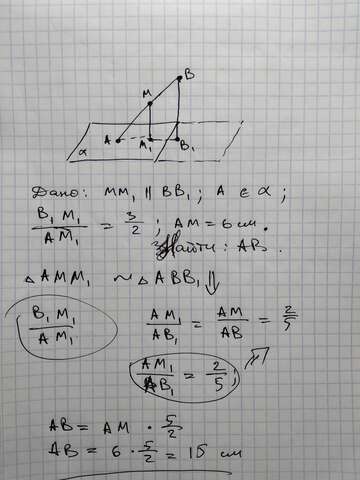 B
M
A M₁ B₁
α
Дано: MM₁ || BB₁; A ∈ α;
B₁M₁ / AM₁ = 3/2; AM = 6 см.
Найти: AB.
△AMM₁ ~ △ABB₁ ⇓
B₁M₁ / AM₁
AM₁ / AB₁ = AM / AB = 2/5
AM₁ / AB₁ = 2/5; ⇗
AB = AM · 5/2
AB = 6 · 5/2 = 15 см